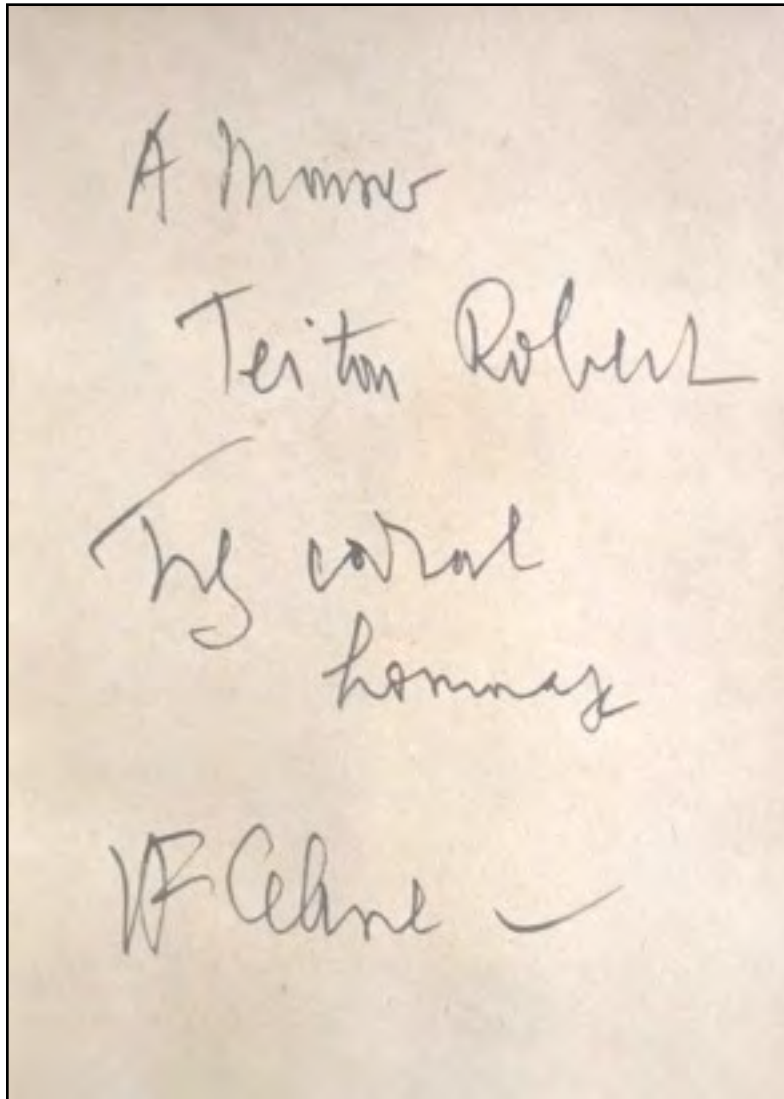 A Monsieur
Teiton Robert
Très cordial
hommage
LF Celine